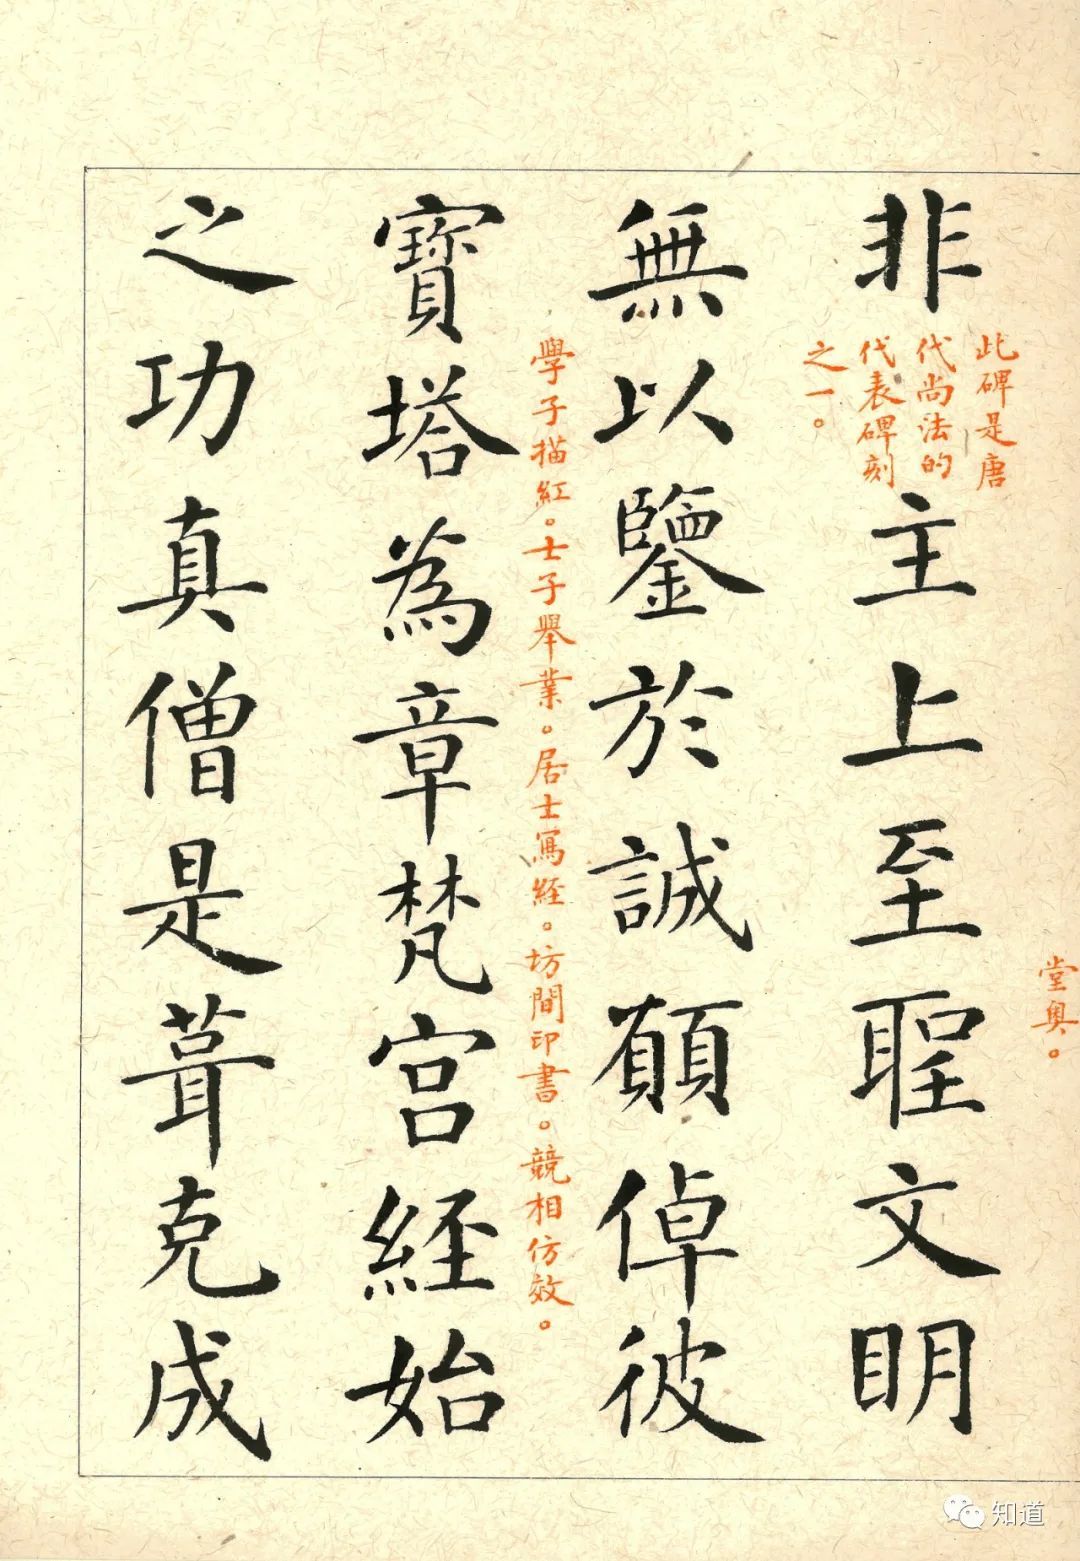 非主上至聖文明
無以鑒於誠願倬彼
寶塔為章梵宮經始
之功真僧是葺克成
此碑是唐
代尚法的
代表碑刻
之一。
堂奥。
學子描紅。士子舉業。居士寫經。坊間印書。競相仿效。
知道